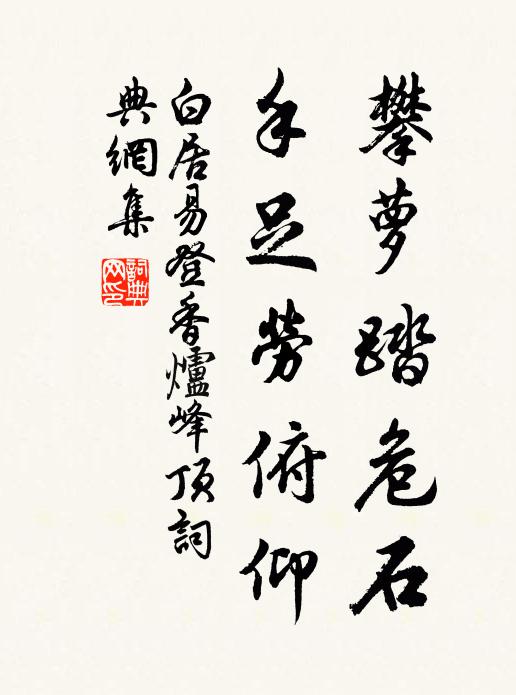 攀萝踏危石
手足勞俯仰
白居易登香爐峰頂詞
典網集
詞典
网印